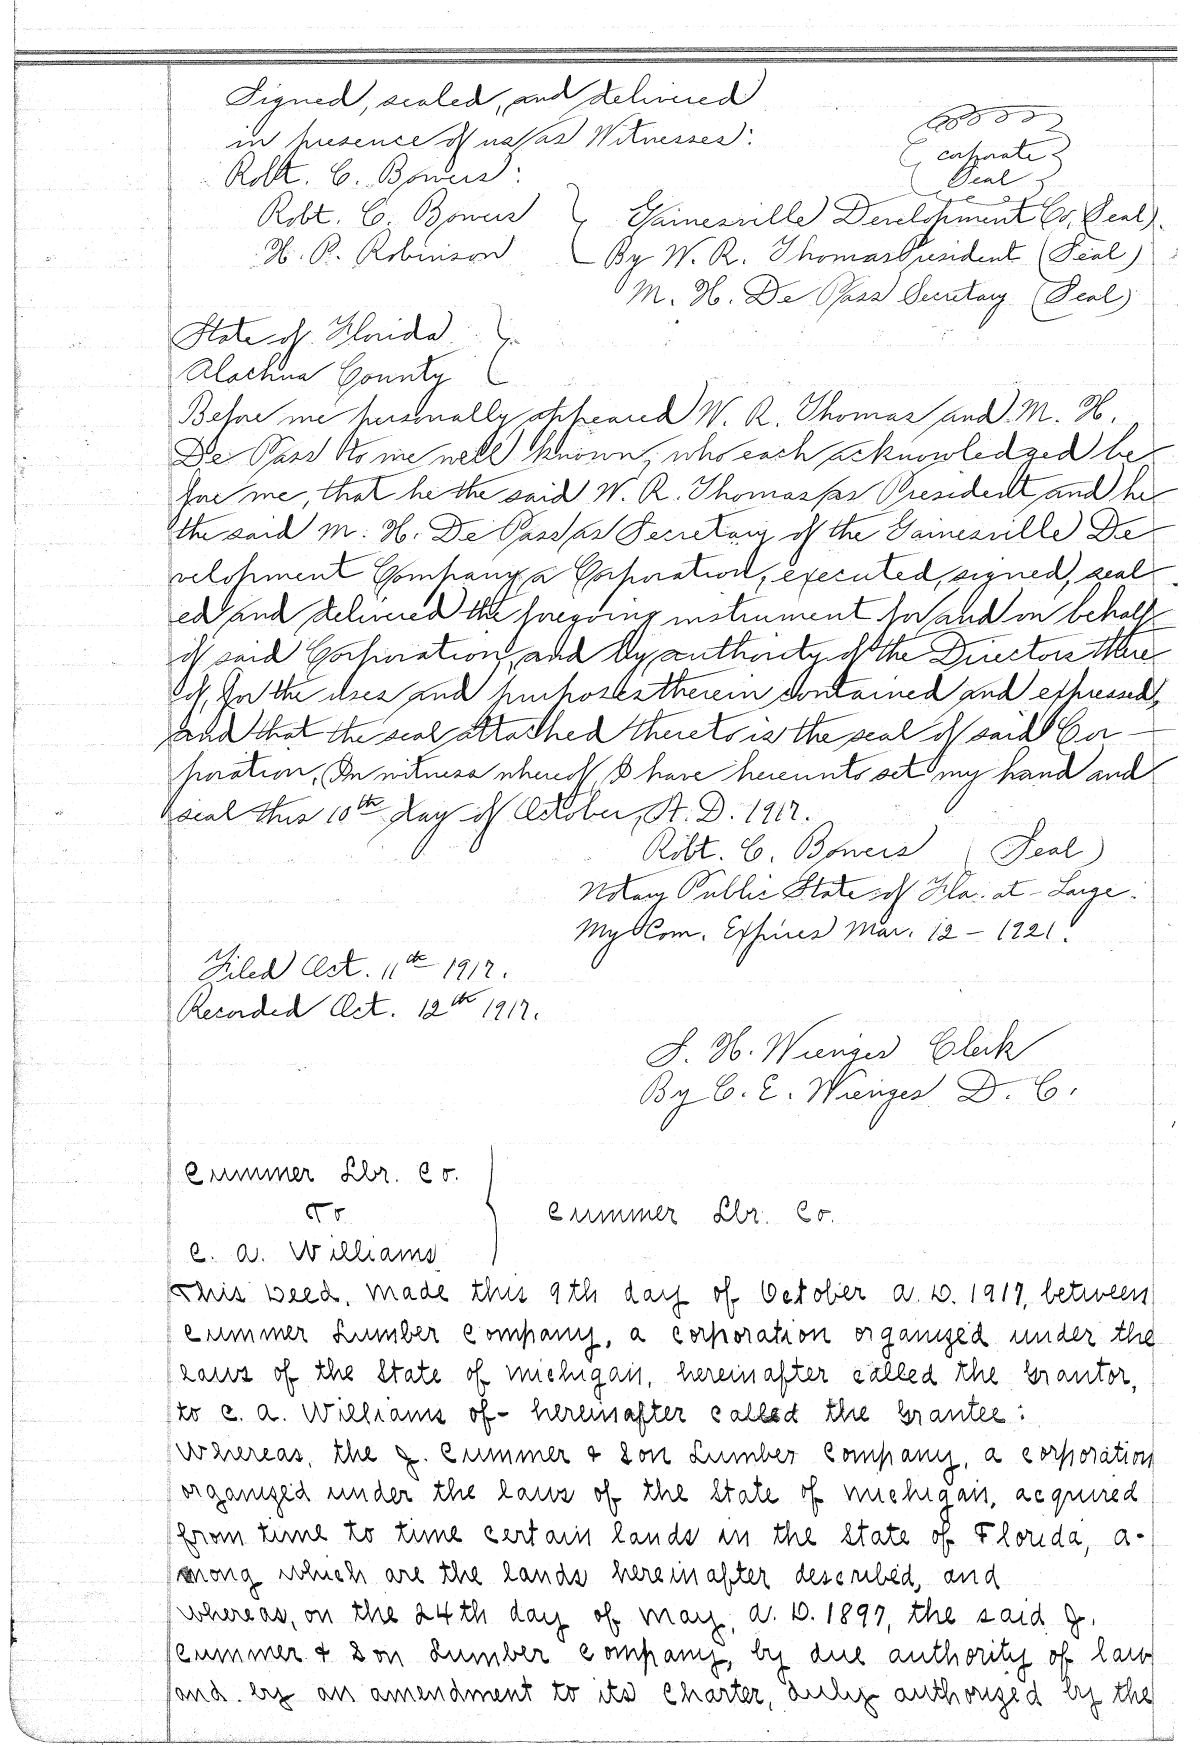 Signed, sealed, and delivered
in presence of us as Witnesses:
Robt. C. Bowers:
corporate
Seal
Robt. C. Bowers Gainesville Development Co, Seal).
H. P. Robinson By W. R. Thomas President (Seal)
M. H. De Pass Secretary (Seal)
State of Florida
Alachua County
Before me personally appeared W. R. Thomas and M. H.
De Pass to me well known, who each acknowledged be
fore me, that he the said W. R. Thomas as President and he
the said M. H. De Pass as Secretary of the Gainesville De
velopment Company a Corporation, executed, signed, seal
ed and delivered the foregoing instrument for and on behalf
of said Corporation, and by authority of the Directors there
of, for the uses and purposes therein contained and expressed,
and that the seal attached thereto is the seal of said Cor-
poration, In witness whereof, I have hereunto set my hand and
seal this 10th day of October, A. D. 1917.
Robt. C. Bowers (Seal)
Notary Public State of Fla. at-Large.
My Com. Expires Mar. 12-1921.
Filed Oct. 11th 1917.
Recorded Oct. 12th 1917.
S. H. Wienges Clerk
By C. E. Wienges D. C.
Cummer Lbr. Co.
To
Cummer Lbr. Co.
C. A. Williams
This Deed, made this 9th day of October A. D. 1917, between
Cummer Lumber Company, a corporation organized under the
laws of the State of Michigan, hereinafter called the Grantor,
to C. A. Williams of- hereinafter called the Grantee:
Whereas, the J. Cummer & Son Lumber Company, a corporation
organized under the laws of the State of Michigan, acquired
from time to time certain lands in the State of Florida, a-
mong which are the lands hereinafter described, and
whereas, on the 24th day of May, A. D. 1897, the said J.
Cummer & Son Lumber Company, by due authority of law
and by an amendment to its Charter, duly authorized by the